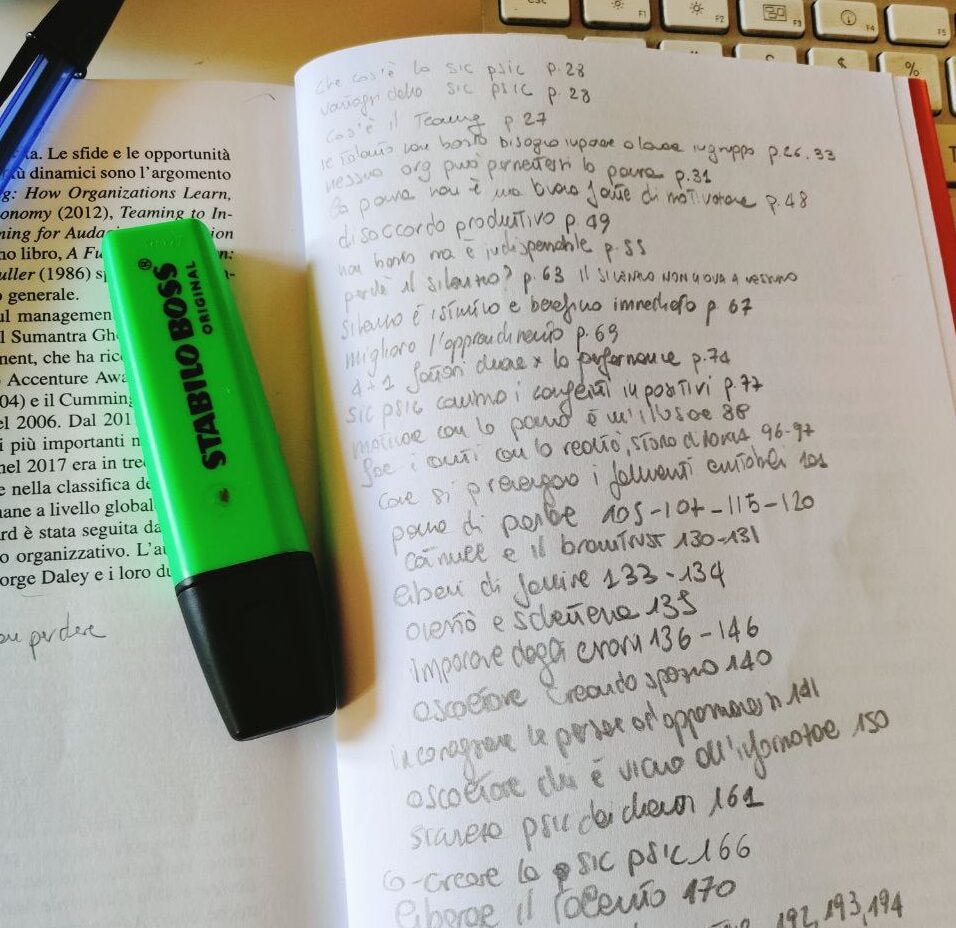 esc
F1
F2
F3
F4
F5
$
%
T
ta. Le sfide e le opportunità
ù dinamici sono l'argomento
g: How Organizations Learn,
onomy (2012), Teaming to In-
ning for Auda ion
no libro, A Fu n:
uller (1986) sp
o generale.
ul managemen
l Sumantra Gh
nent, che ha ric
Accenture Awa
04) e il Cumming
el 2006. Dal 201
i più importanti n
nel 2017 era in tre
e nella classifica de
nane a livello global
rd è stata seguita da
o organizzativo. L'au
orge Daley e i loro du
perdere
STABILO BOSS®
ORIGINAL
che cos'è la sic psic p.28
vantaggi della sic psic p.28
cos'è il Teaming p 27
le talento non basta bisogna imparare a lavorare in gruppo p.26.33
nessuna org può permettersi la paura p.31
la paura non è una buona fonte di motivazione p.48
disaccordo produttivo p.49
non basta ma è indispensabile p.55
perchè il silenzio? p.63 IL SILENZIO NON GIOVA A NESSUNO
silenzio è istintivo e beneficio immediato p 67
migliora l'apprendimento p.69
4+1 fattori chiave x la performance p.74
sic psic i conflitti in positivi p.77
motivare con la paura è un'illusione 88
fare i conti con la realtà, 96-97
come si prevengono i fallimenti evitabili 101
paura di parlare 105-107-115-120
e il braintrust 130-131
liberi di fallire 133-134
e schiettezza 135
imparare dagli errori 136-146
ascoltare creando spazio 140
incoraggiare le persone ad 141
ascoltare chi è vicino all'informazione 150
sicurezza psic dei 161
co-creare la sic psic 166
liberare il talento 170
192,193,194